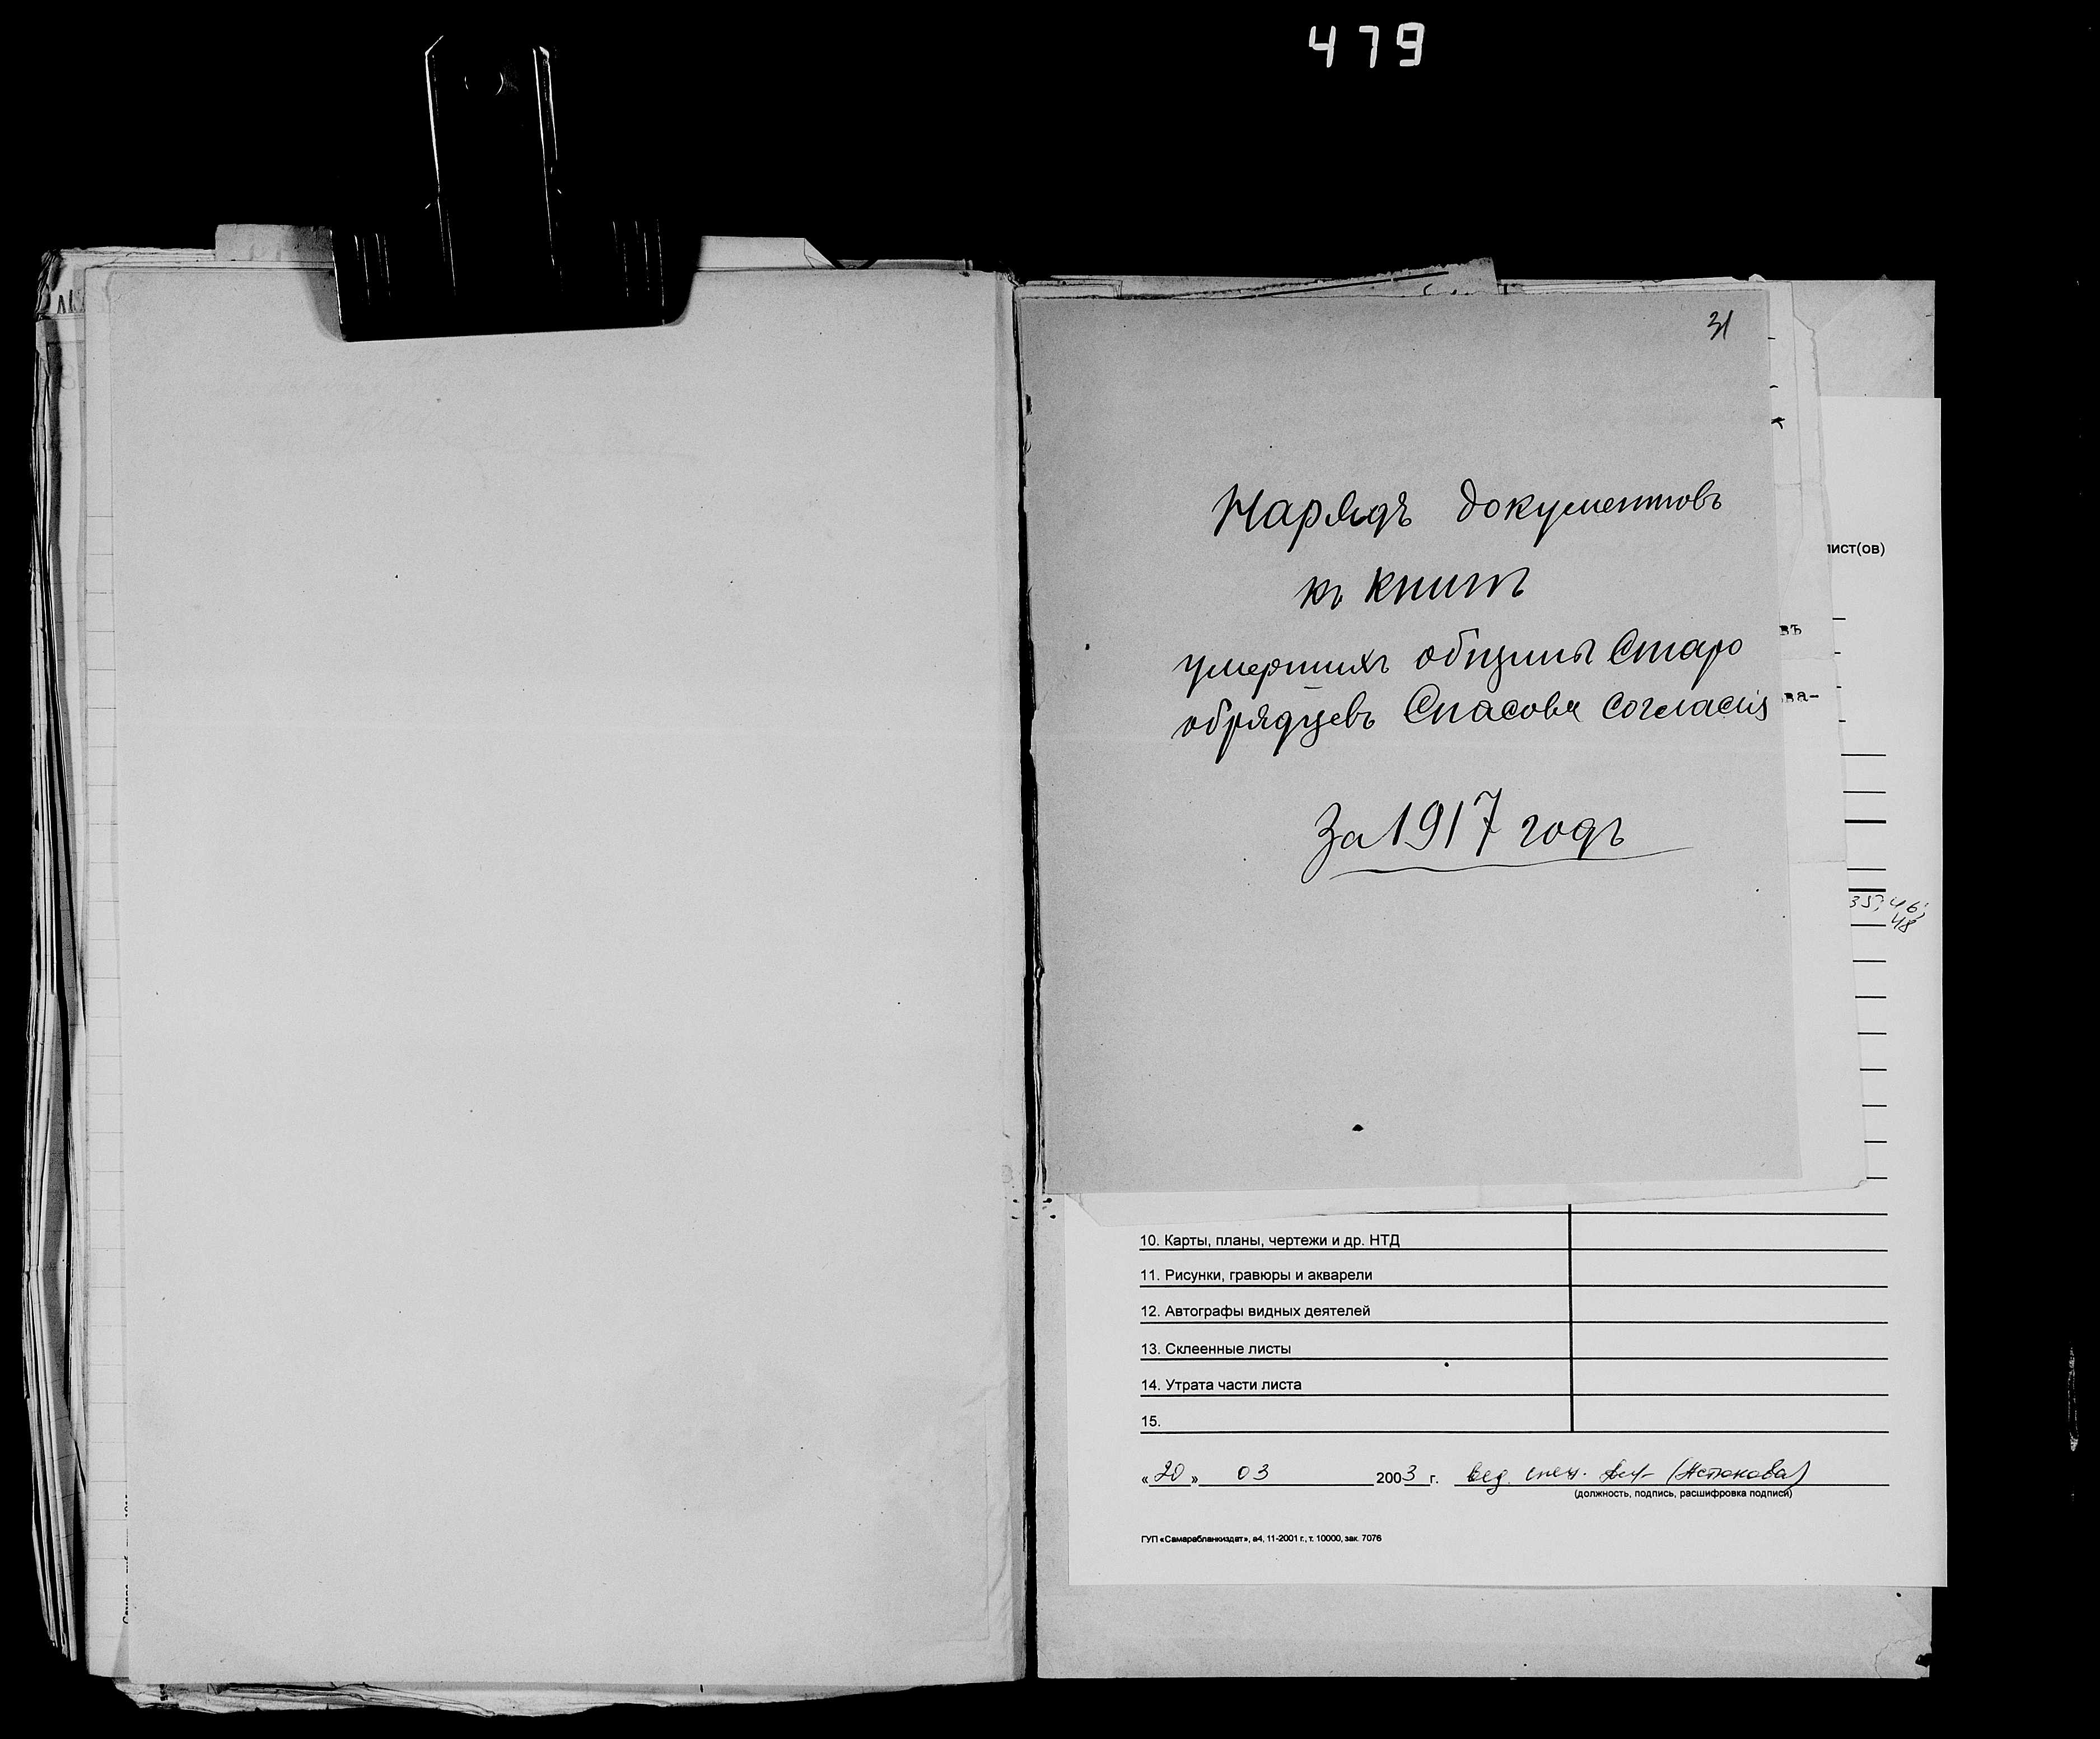 479
31
Нарядъ документовъ
къ книгѣ
умершихъ общины Старо
обрядцевъ Спасова согласія
За 1917 годъ
лист(ов)
въ
ва-
35; 46;
48
10. Карты, планы, чертежи и др. НТД
11. Рисунки, гравюры и акварели
12. Автографы видных деятелей
13. Склеенные листы
14. Утрата части листа
15.
«20» 03 2003 г. вед. спец.
(должность, подпись, расшифровка подписи)
ГУП «Самарабланкиздат», а4, 11-2001 г., т. 10000, зак. 7076